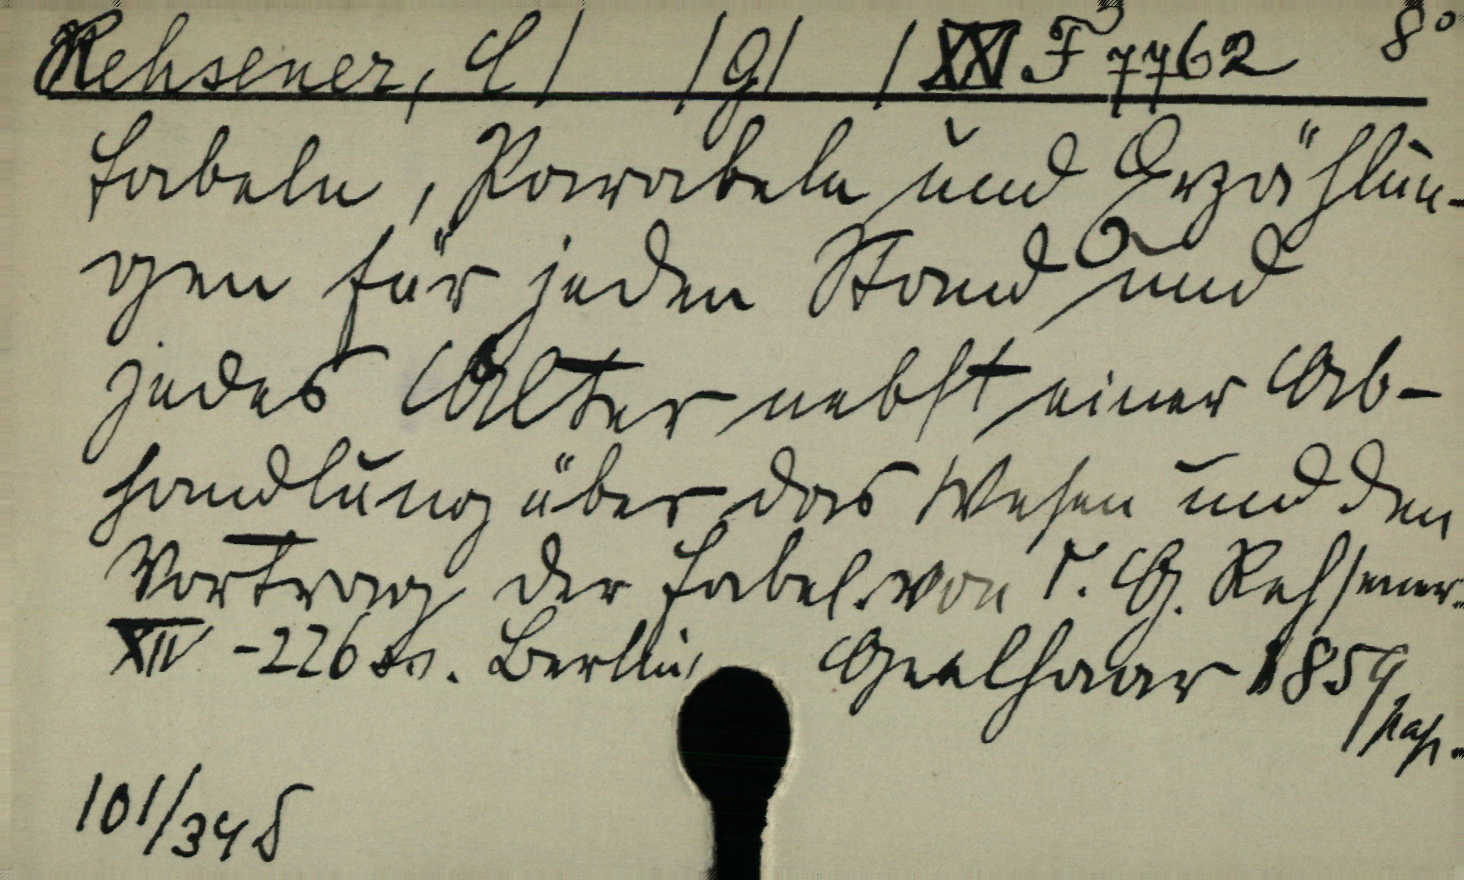 Rehsener, C/ /G/ /XXI F 7762 8°
Fabeln, Parabeln und Erzählun-
gen für jeden Stand und
jedes Alter nebst einer Ab-
handlung über das Wesen und den
Vortrag der Fabel. von C. G. Rehsener.
XIV - 226 SS. Berlin, Gaelhaar 1859
pap.
101/345